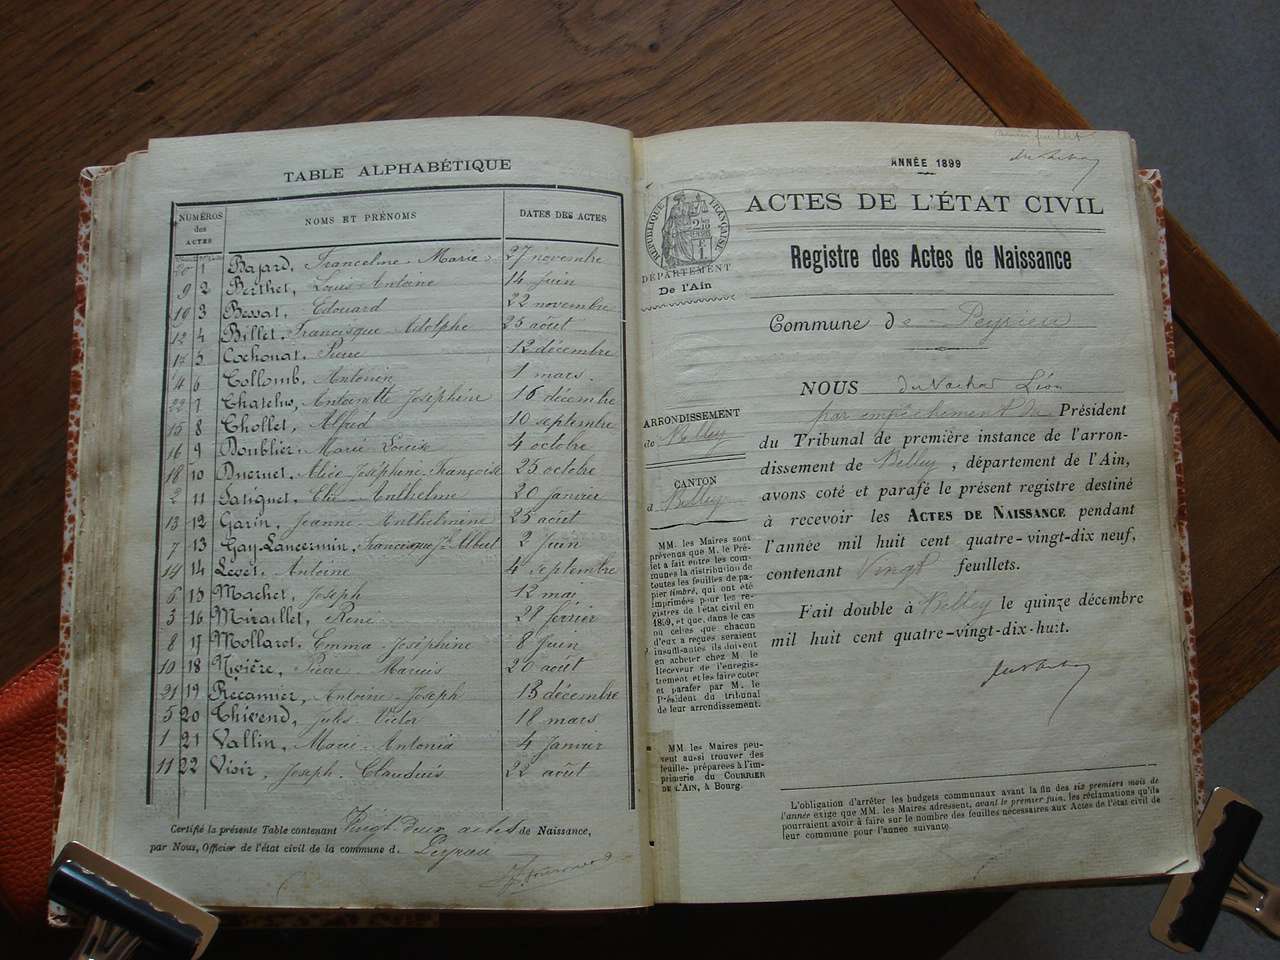 TABLE ALPHABÉTIQUE
NUMÉROS des ACTES NOMS ET PRÉNOMS DATES DES ACTES
20 1 Bajard, Franceline-Marie 27 novembre
9 2 Berthet, Louis-Antoine 14 juin
19 3 Bessat, Edouard 22 novembre
12 4 Billet, Francisque Adolphe 25 août
5 Cochonat, Pierre 12 décembre
4 6 Collomb, Antonin 1 mars
22 7 Chatelus, Antoinette Joséphine 16 décembre
15 8 Chollet, Alfred 10 septembre
16 9 Doublier, Marie-Louise 4 octobre
18 10 Ducruet, Alice-Joséphine-Françoise 25 octobre
2 11 Anthelme 20 janvier
13 12 Garin, Jeanne-Anthelmine 25 août
7 13 Gay-Lancermin, Albert 2 juin
14 14 Levet, Antoine 4 septembre
6 15 Machet, Joseph 12 mai
3 16 Miraillet, René 28 février
8 17 Mollarot, Emma-Joséphine 8 juin
10 18 Nivière, Pierre-Marius 20 août
21 19 Récamier, Antoine-Joseph 13 décembre
5 20 Thivend, Jules-Victor 18 mars
1 21 Vallin, Marie-Antonia 4 janvier
11 22 Visir, Joseph-Claudius 22 août
Certifié la présente Table contenant Vingt deux actes de Naissance,
par Nous, Officier de l'état civil de la commune d. Peyrieu
ANNÉE 1899
RÉPUBLIQUE FRANÇAISE
DÉPARTEMENT
De l'Ain
ACTES DE L'ÉTAT CIVIL
Registre des Actes de Naissance
Commune de Peyrieu
ARRONDISSEMENT
de Belley
CANTON
d Belley
MM. les Maires sont
prévenus que M. le Pré-
fet a fait entre les com-
munes la distribution de
toutes les feuilles de pa-
pier timbré, qui ont été
imprimées pour les re-
gistres de l'état civil en
1899, et que, dans le cas
où celles que chacun
d'eux a reçues seraient
insuffisantes ils doivent
en acheter chez M. le
Receveur de l'enregis-
trement et les faire coter
et parafer par M. le
Président du tribunal
de leur arrondissement.
MM. les Maires peu-
vent aussi trouver des
feuilles préparées à l'im-
primerie du COURRIER
DE L'AIN, à Bourg.
NOUS Léon
par empêchement du Président
du Tribunal de première instance de l'arron-
dissement de Belley, département de l'Ain,
avons coté et parafé le présent registre destiné
à recevoir les ACTES DE NAISSANCE pendant
l'année mil huit cent quatre-vingt-dix neuf,
contenant Vingt feuillets.
Fait double à Belley le quinze décembre
mil huit cent quatre-vingt-dix-huit.
L'obligation d'arrêter les budgets communaux avant la fin des six premiers mois de
l'année exige que MM. les Maires adressent, avant le premier juin, les réclamations qu'ils
pourraient avoir à faire sur le nombre des feuilles nécessaires aux Actes de l'état civil de
leur commune pour l'année suivante.